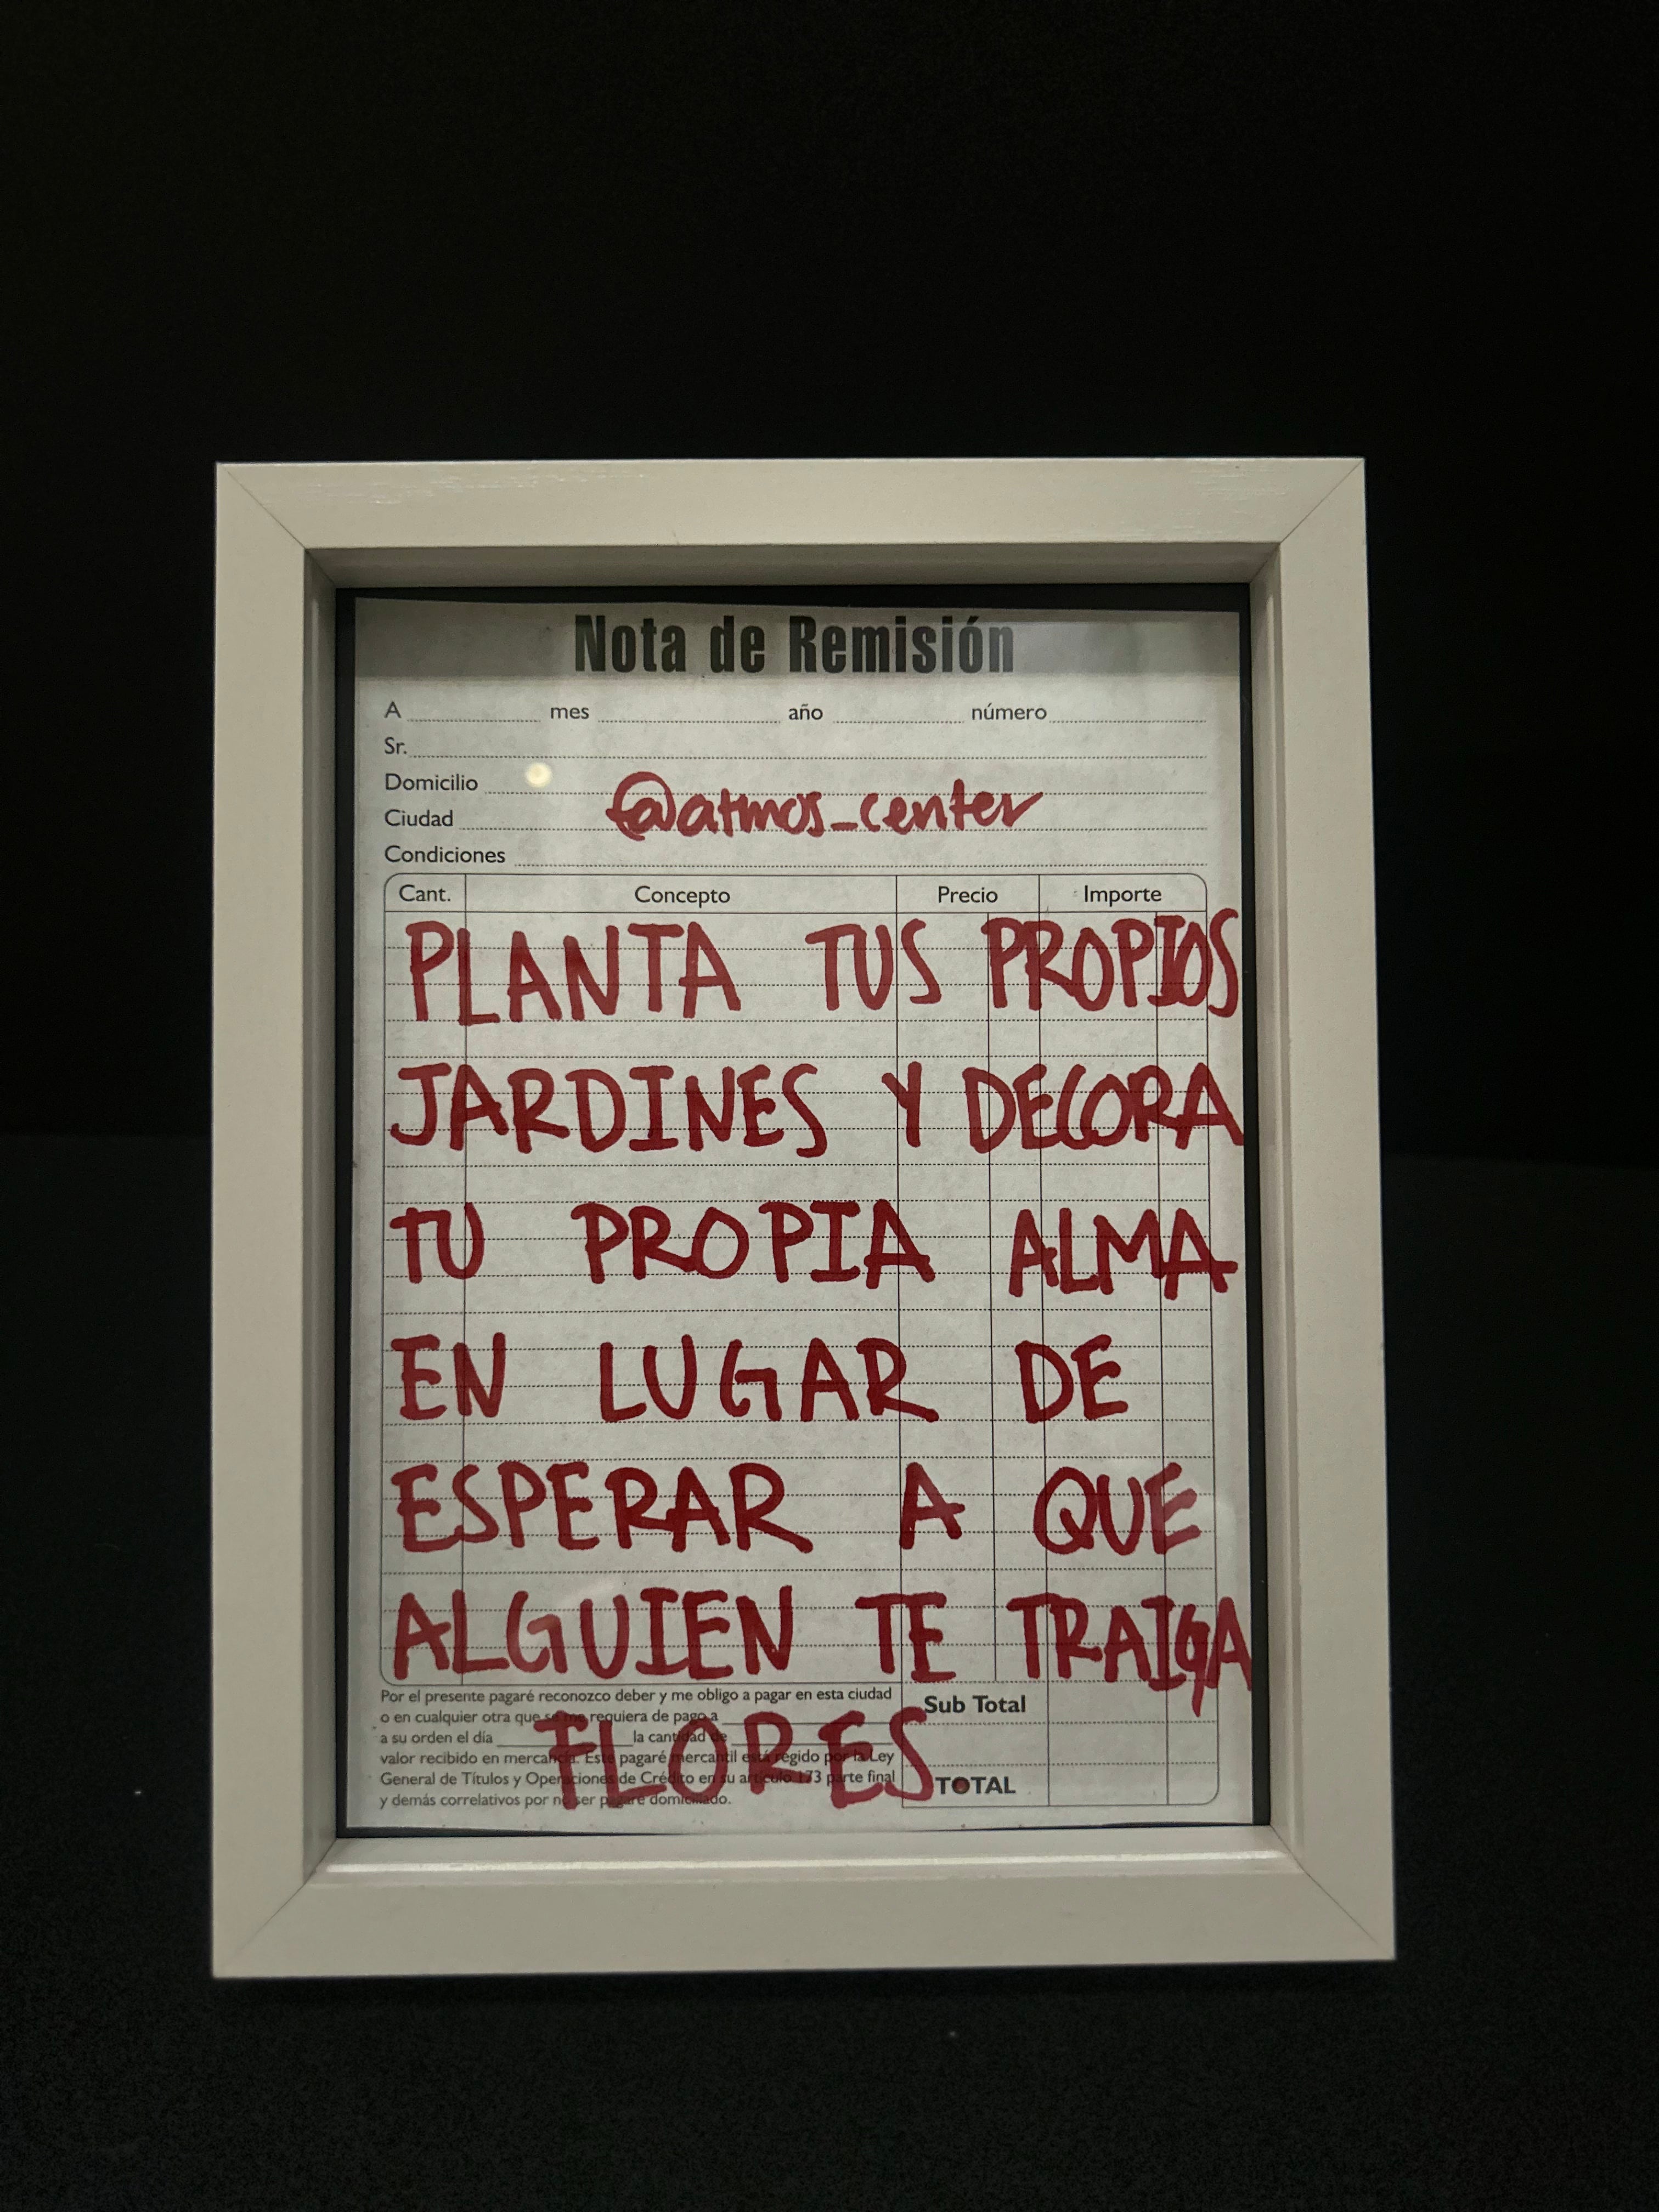 Nota de Remisión
A mes año número
Sr.
Domicilio
@atmos_center
Ciudad
Condiciones
Cant. Concepto Precio Importe
PLANTA TUS PROPIOS
JARDINES Y DECORA
TU PROPIA ALMA
EN LUGAR DE
ESPERAR A QUE
ALGUIEN TE TRAIGA
FLORES
Por el presente pagaré reconozco deber y me obligo a pagar en esta ciudad
o en cualquier otra que se me requiera de pago a
a su orden el día la cantidad de
valor recibido en mercancía. Este pagaré mercantil está regido por la Ley
General de Títulos y Operaciones de Crédito en su artículo 173 parte final
y demás correlativos por no ser pagaré domiciliado.
Sub Total
TOTAL